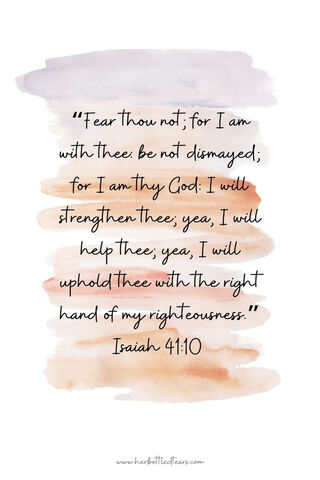 “Fear thou not; for I am
with thee: be not dismayed;
for I am thy God: I will
strengthen thee; yea, I will
help thee; yea, I will
uphold thee with the right
hand of my righteousness.”
Isaiah 41:10
www.herbottledtears.com